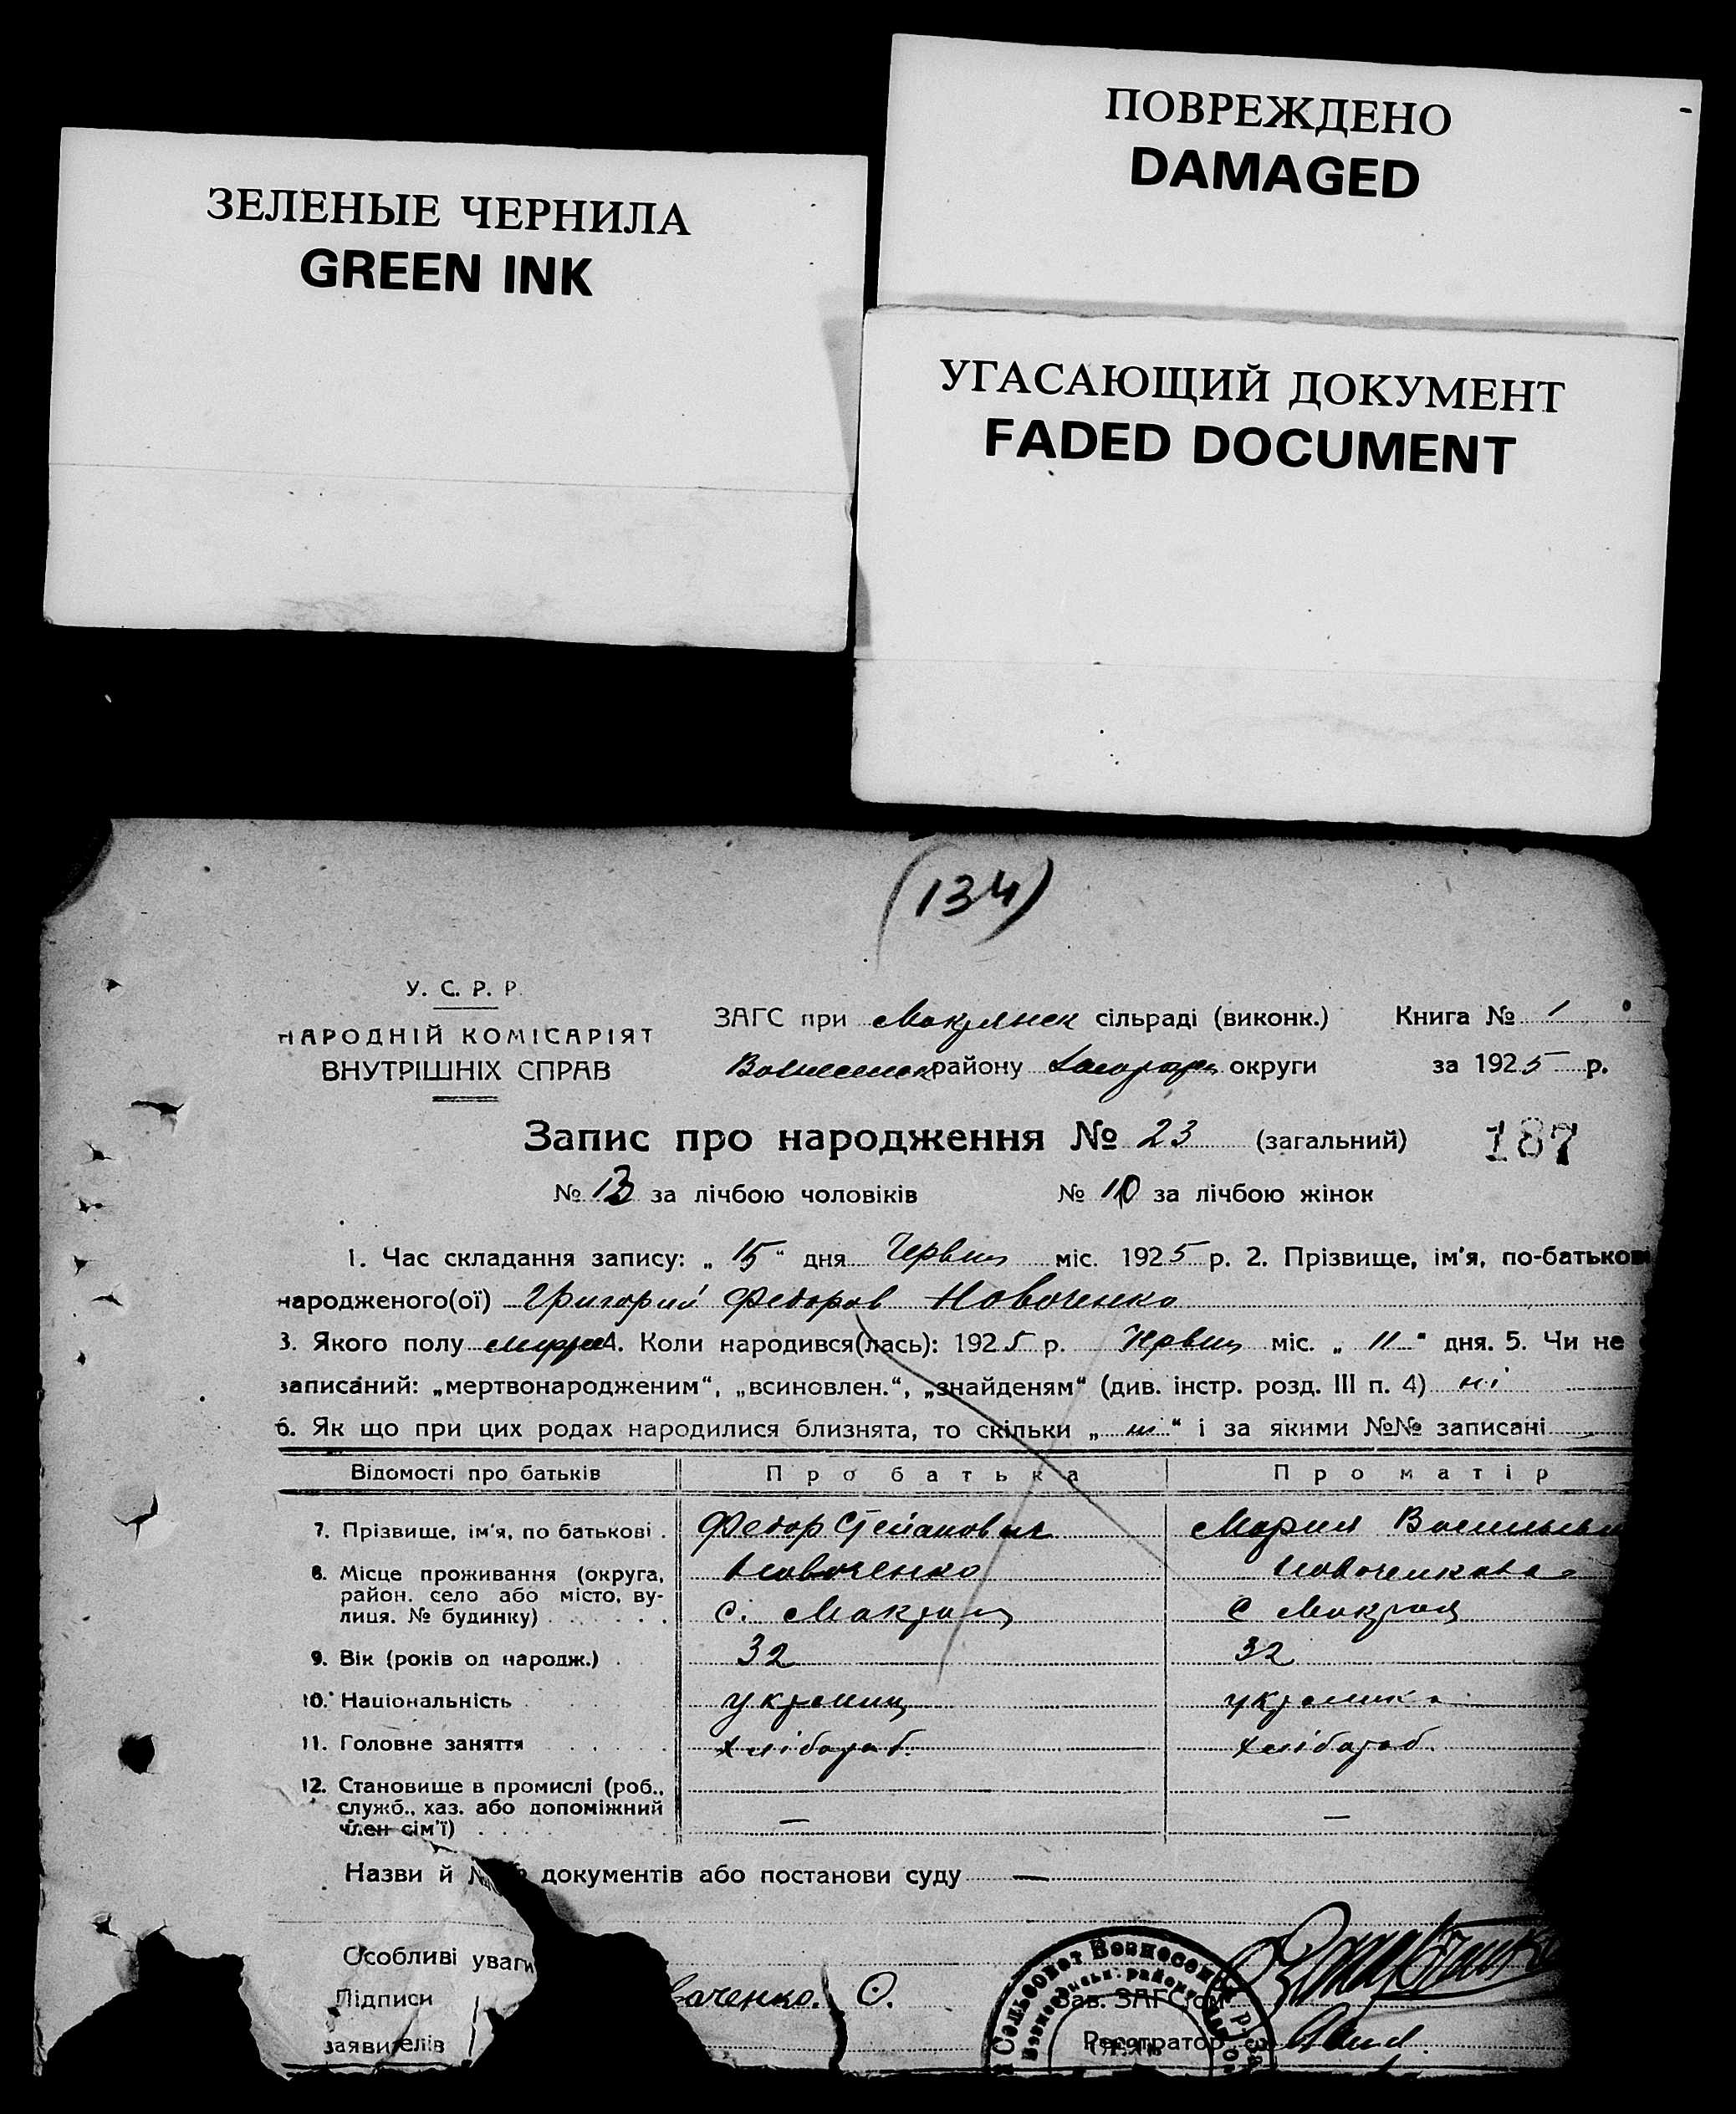 ЗЕЛЕНЫЕ ЧЕРНИЛА
GREEN INK
ПОВРЕЖДЕНО
DAMAGED
УГАСАЮЩИЙ ДОКУМЕНТ
FADED DOCUMENT
(134)
У. С. Р. Р.
НАРОДНІЙ КОМІСАРІЯТ
ВНУТРІШНІХ СПРАВ
ЗАГС при сільраді (виконк.) Книга № 1
району округи за 1925 р.
Запис про народження № 23 (загальний) 187
№ 13 за лічбою чоловіків № 10 за лічбою жінок
1. Час складання запису: „ 15 “ дня Червня міс. 1925 р. 2. Прізвище, ім'я, по-батькові
народженого(ої) Григорий Федоров Новоченко
3. Якого полу 4. Коли народився(лась): 1925 р. Червня міс. „ 11 “ дня. 5. Чи не
записаний: „мертвонародженим“, „всиновлен.“, „знайденям“ (див. інстр. розд. III п. 4) ні
6. Як що при цих родах народилися близнята, то скільки „ ні “ і за якими №№ записані
Відомості про батьків Про батька Про матір
7. Прізвище, ім'я, по батькові . Федор Степанович Мария
Новоченко
8. Місце проживання (округа,
район. село або місто, ву-
лиця. № будинку) с. с
9. Вік (років од народж.) 32 32
10. Національність
11. Головне заняття хлібороб. хлібороб.
12. Становище в промислі (роб.,
служб., хаз. або допоміжний
член сім'ї) — —
Назви й № документів або постанови суду —
Особливі уваги
Підписи воченко. О. Зав. ЗАГС'ом
заявителів Реєстратор